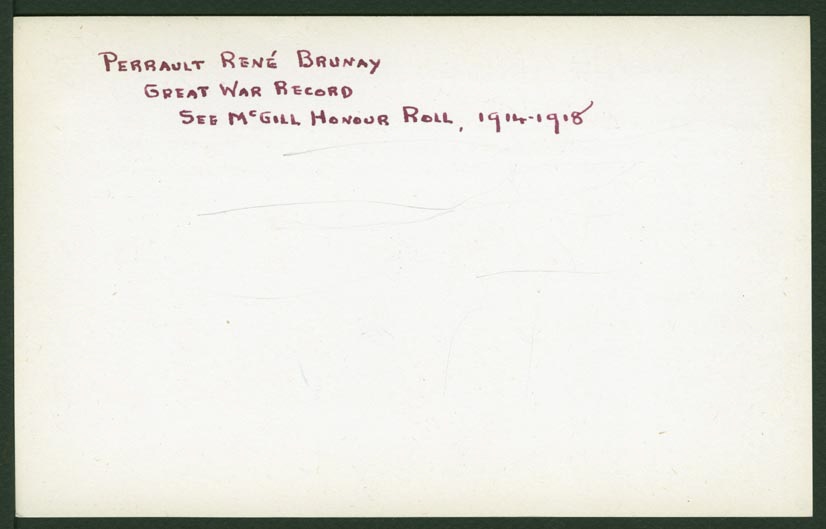 PERRAULT RENÉ BRUNAY
GREAT WAR RECORD
SEE McGILL HONOUR ROLL, 1914-1918